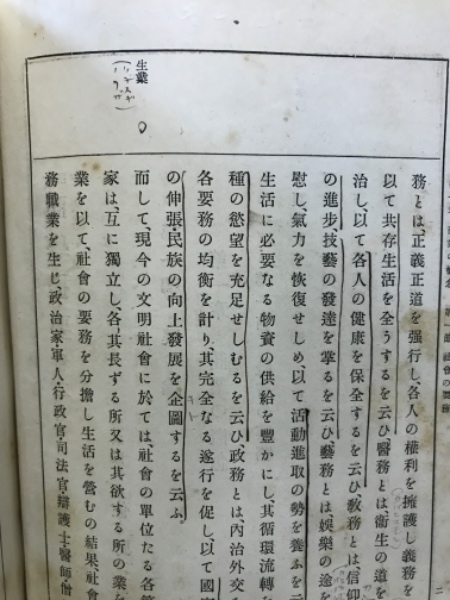 第一節 社會の要務
二
務とは、正義正道を强行し、各人の權利を擁護し義務を
以て共存生活を全うするを云ひ、醫務とは、衞生の道を
治し、以て各人の健康を保全するを云ひ、敎務とは信仰
の進步、技藝の發達を掌るを云ひ、藝務とは娛樂の途を
慰し、氣力を恢復せしめ、以て活動進取の勢を養ふを云
生活に必要なる物資の供給を豐かにし、其循環流轉を
種の慾望を充足せしむるを云ひ、政務とは、內治外交を
各要務の均衡を計り、其完全なる遂行を促し、以て國家
の伸張・民族の向上發展を企圖するを云ふ
而して、現今の文明社會に於ては、社會の單位たる各
家は、互に獨立し、各、其長ずる所又は其欲する所の業を
業を以て、社會の要務を分擔し生活を營むの結果、社會
務職業を生じ、政治家・軍人・行政官・司法官・辯護士・醫師・僧
生業